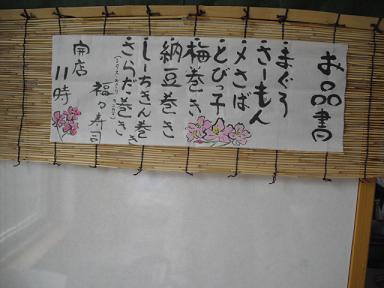 お品書
まぐろ
さーもん
〆さば
とびっ子
梅巻き
納豆巻き
しーちきん巻き
さらだ巻き
福の寿司
開店
11時